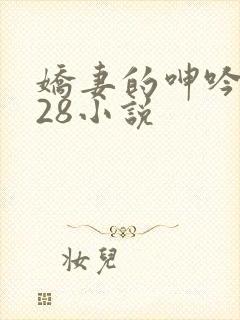 嬌妻的呻吟
28小說
妝兒